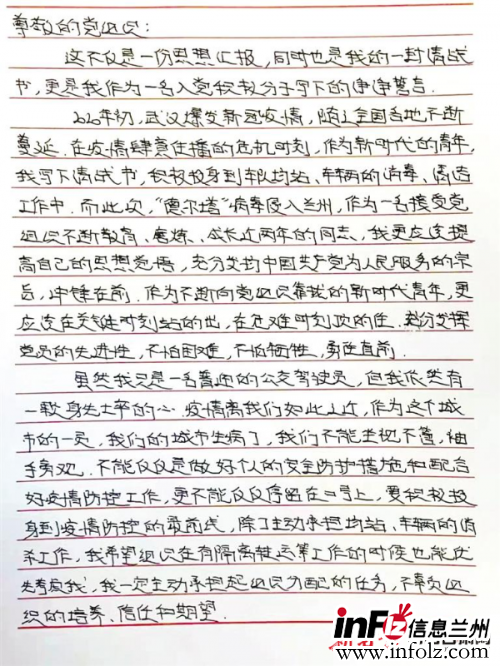 尊敬的党组织：
这不仅是一份思想汇报，同时也是我的一封请战
书，更是我作为一名入党积极分子写下的铮铮誓言．
2020年初，武汉爆发新冠疫情，随之全国各地不断
蔓延．在疫情肆意传播的危机时刻，作为新时代的青年，
我写下请战书，积极投身到车队均站、车辆的消毒、清洁
工作中．而此次，“德尔塔”病毒侵入兰州，作为一名接受党
组织不断教育、磨炼、成长近两年的同志，我更应该提
高自己的思想觉悟，充分发扬中国共产党为人民服务的宗
旨，冲锋在前．作为不断向党组织靠拢的新时代青年，更
应该在关键时刻站的出，在危难时刻顶的住．充分发挥
党员的先进性，不怕困难，不怕牺牲，勇往直前．
虽然我只是一名普通的公交驾驶员，但我依然有
一颗身先士卒的心．疫情离我们如此之近，作为这个城
市的一员，我们的城市生病了，我们不能坐视不管，袖
手旁观．不能仅仅是做好个人的安全防护措施和配合
好疫情防控工作，更不能仅仅停留在口号上，要积极投
身到疫情防控的最前线，除了主动承担均站、车辆的消
杀工作，我希望组织在有隔离转运等工作的时候也能优
先考虑我，我一定主动承担起组织分配的任务，不辜负组
织的培养、信任和期望．
infolz 信息兰州
www.infolz.com